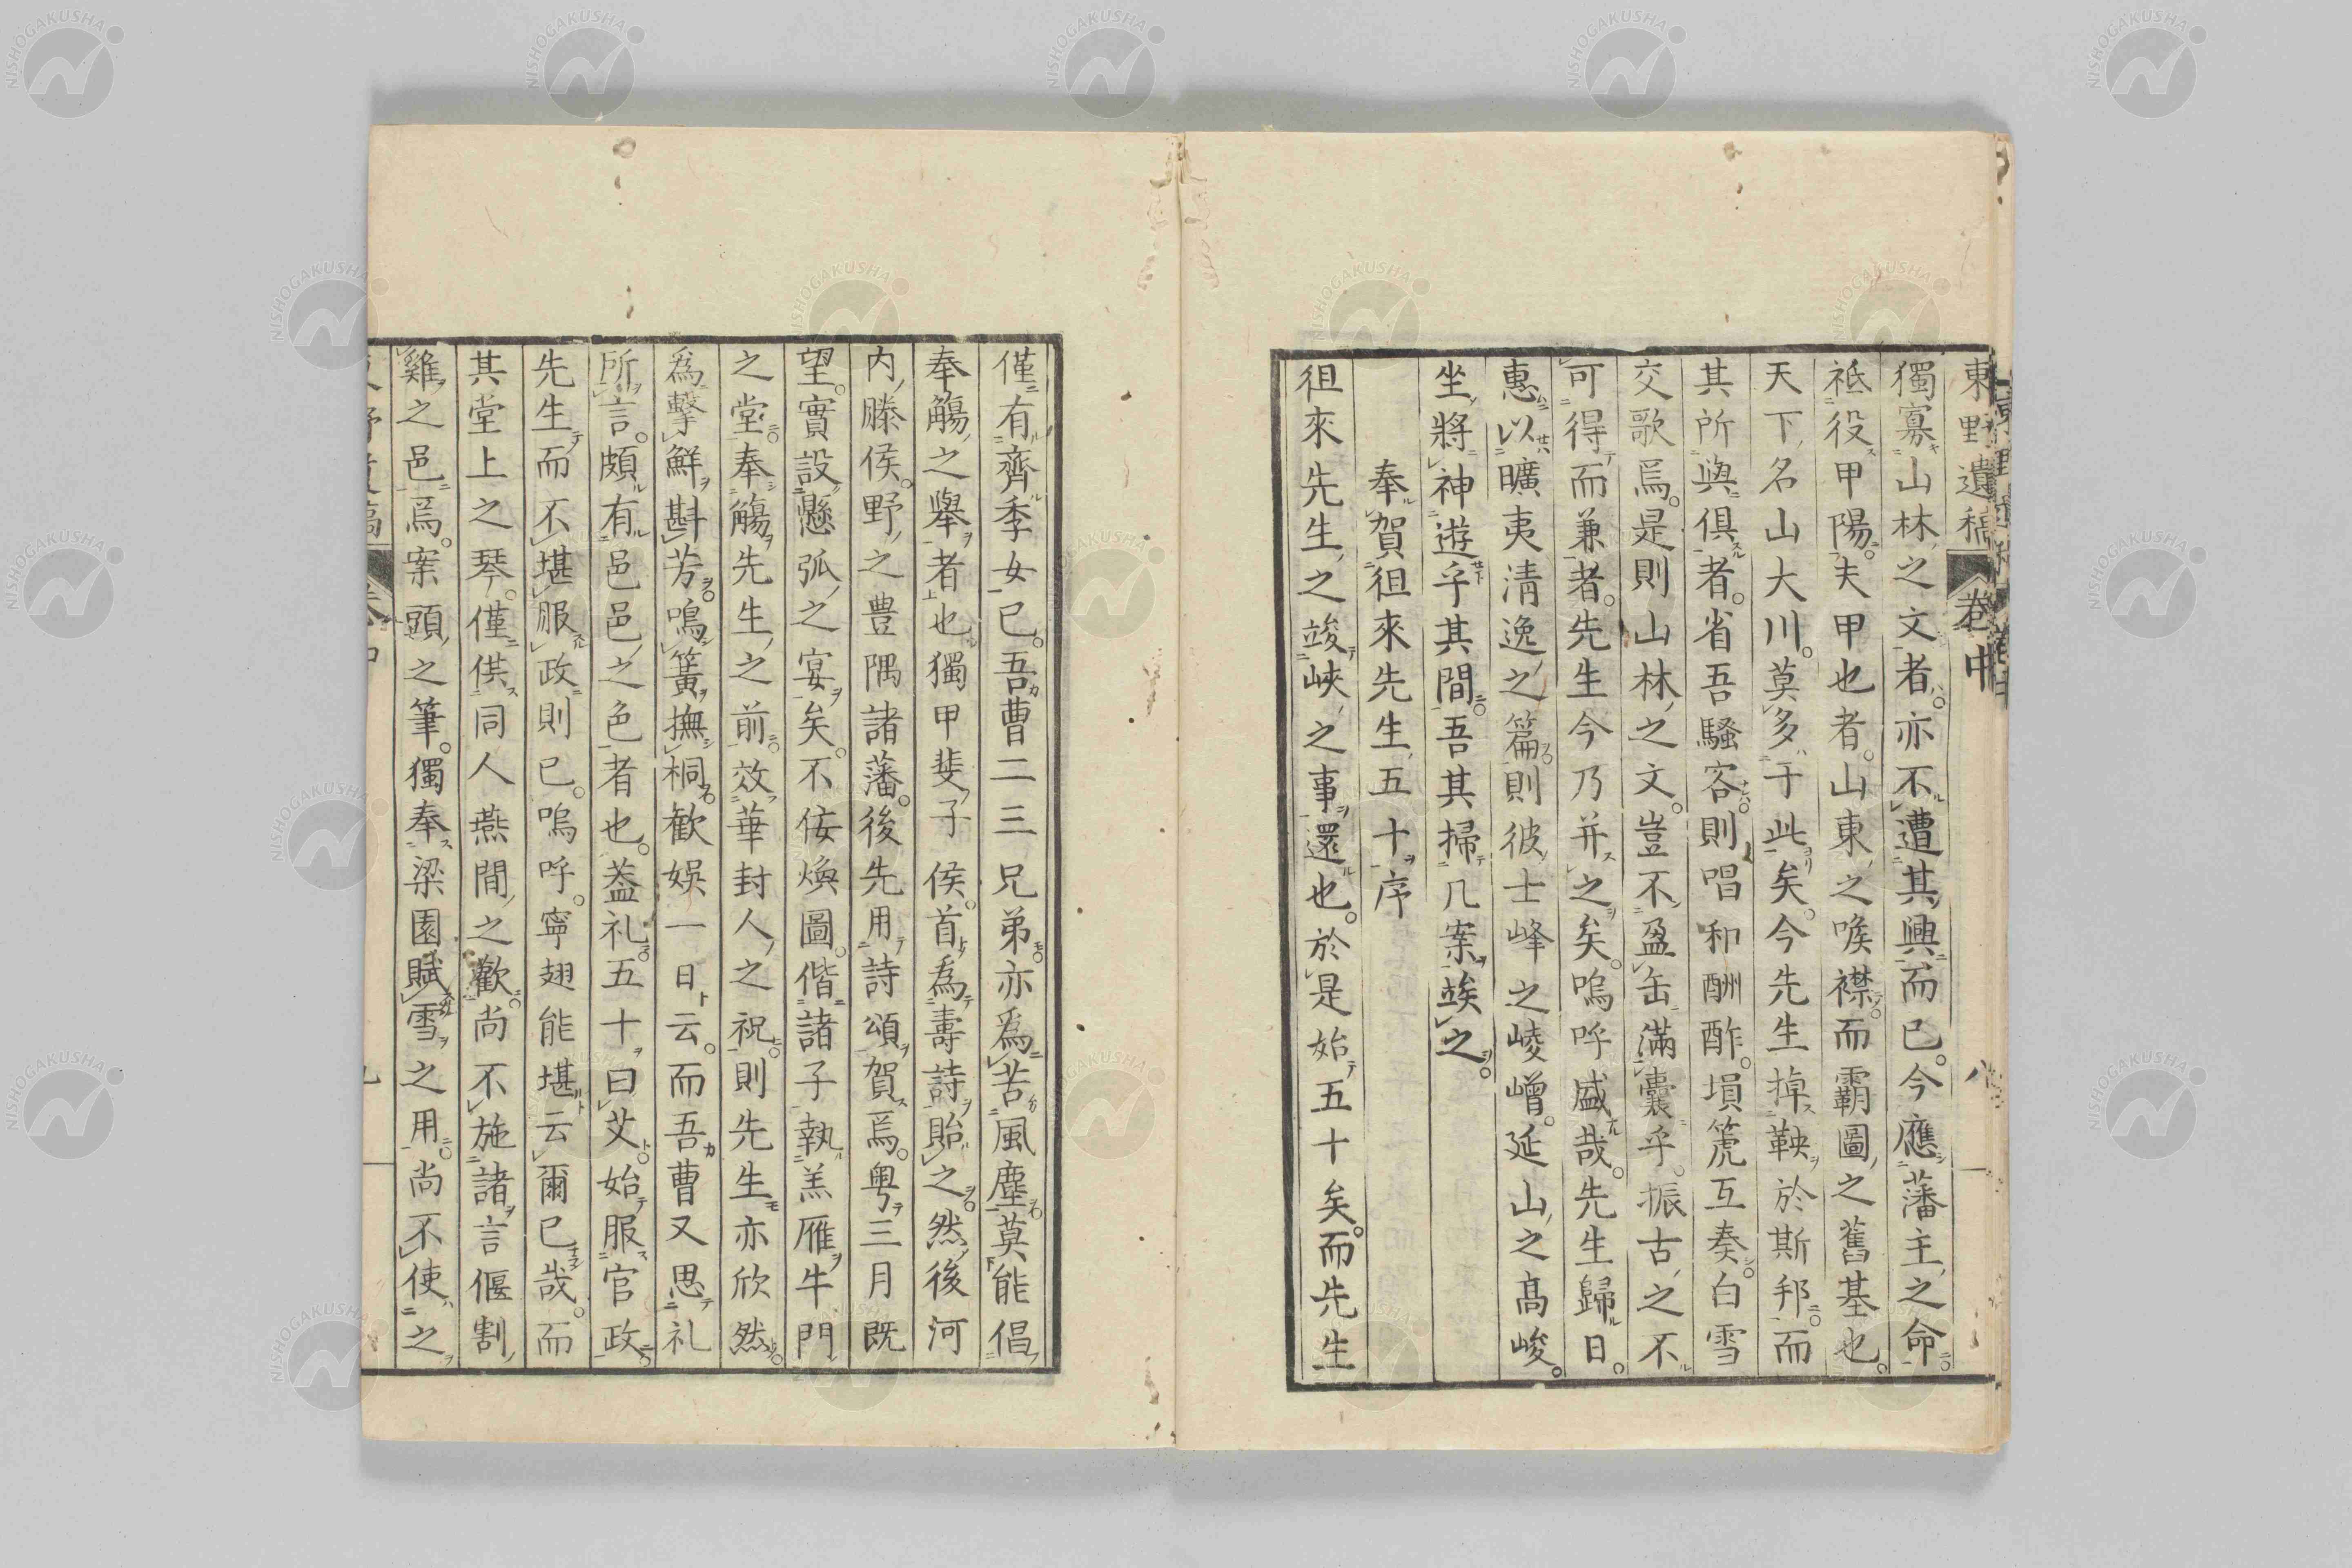 東野遺稿 卷中 八
獨寡山林之文者亦不遭其興而已今應藩主之命
祗役甲陽夫甲也者山東之喉襟而霸圖之舊基也
天下名山大川莫多于此矣今先生掉鞅於斯邦而
其所與俱者省吾騷客則唱和酬酢塤篪互奏白雪
交歌焉是則山林之文豈不盈缶滿囊乎振古之不
可得而兼者先生今乃并之矣嗚呼盛哉先生歸日
惠以曠夷清逸之篇則彼士峰之崚嶒延山之髙峻
坐將神遊乎其間吾其掃几案竢之
奉賀徂來先生五十序
徂來先生之竣峽之事還也於是始五十矣而先生
僅有齊季女已吾曹二三兄弟亦爲苦風塵莫能倡
奉觴之擧者也獨甲斐子侯首爲壽詩貽之然後河
内滕侯野之豊隅諸藩後先用詩頌賀焉粤三月既
望實設懸弧之宴矣不佞煥圖偕諸子執羔雁牛門
之堂奉觴先生之前效華封人之祝則先生亦欣然
爲擊鮮斟芳鳴簧撫桐歡娛一日云而吾曹又思礼
所言頗有邑邑之色者也蓋礼五十曰艾始服官政
先生而不堪服政則已嗚呼寧翅能堪云爾已哉而
其堂上之琴僅供同人燕閒之歡尚不施諸言偃割
雞之邑焉案頭之筆獨奉梁園賦雪之用尚不使之